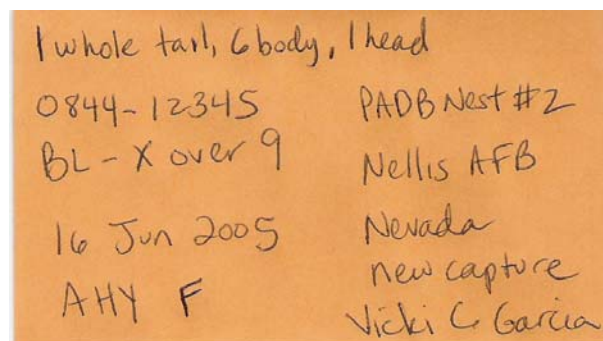 1 whole tail, 6 body, 1 head
0844-12345
BL - X over 9
16 Jun 2005
AHY F
PADB Nest #2
Nellis AFB
Nevada
new capture
Vicki C Garcia